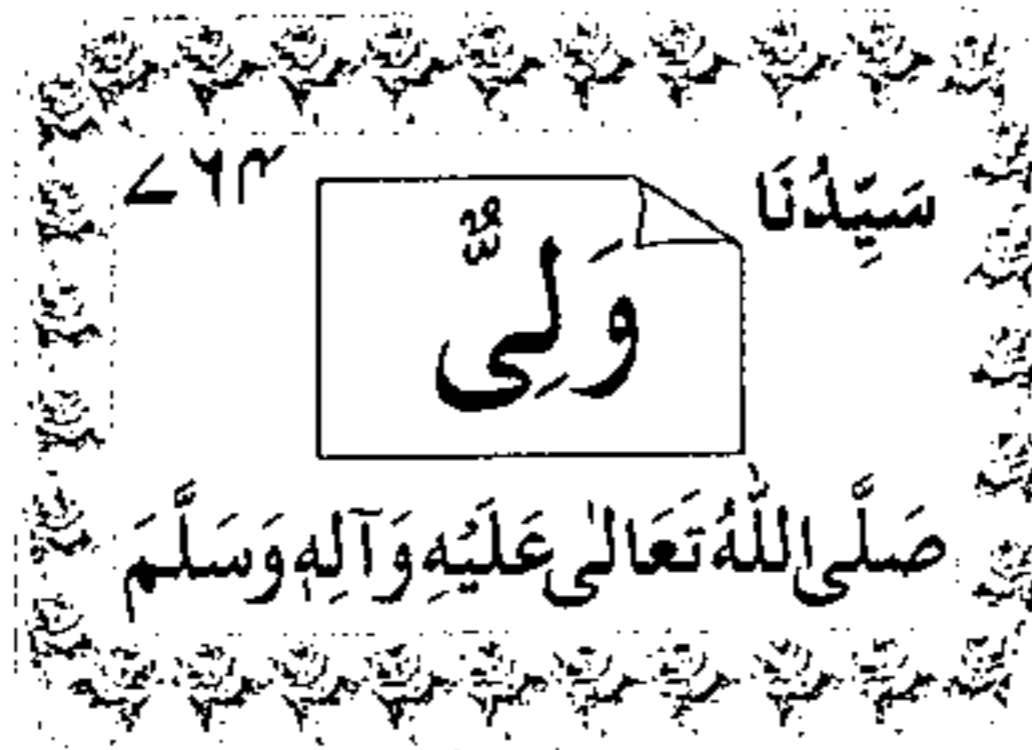 سَیِّدُنَا ۷۶۴
وَلِیٌّ
صَلَّی اللّٰهُ تَعَالٰی عَلَیْهِ وَآلِهٖ وَسَلَّمَ